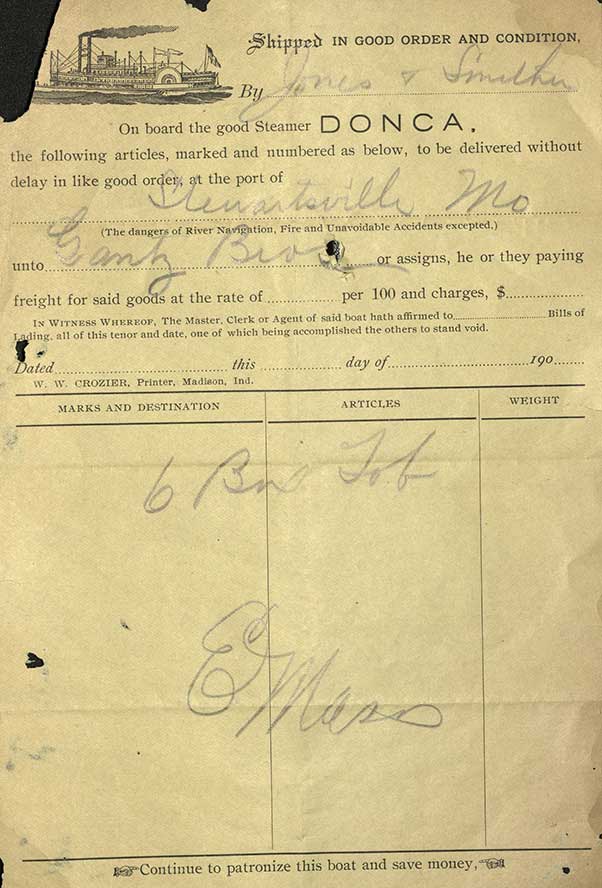 Shipped IN GOOD ORDER AND CONDITION,
By Jones & Smither
On board the good Steamer DONCA,
the following articles, marked and numbered as below, to be delivered without
delay in like good order, at the port of
Stewartsville Mo
(The dangers of River Navigation, Fire and Unavoidable Accidents excepted.)
unto Gantz Bros or assigns, he or they paying
freight for said goods at the rate of per 100 and charges, $
IN WITNESS WHEREOF, The Master, Clerk or Agent of said boat hath affirmed to Bills of
Lading, all of this tenor and date, one of which being accomplished the others to stand void.
Dated this day of 190
W. W. CROZIER, Printer, Madison, Ind.
MARKS AND DESTINATION ARTICLES WEIGHT
6 Bx Tob
E Mass
Continue to patronize this boat and save money,